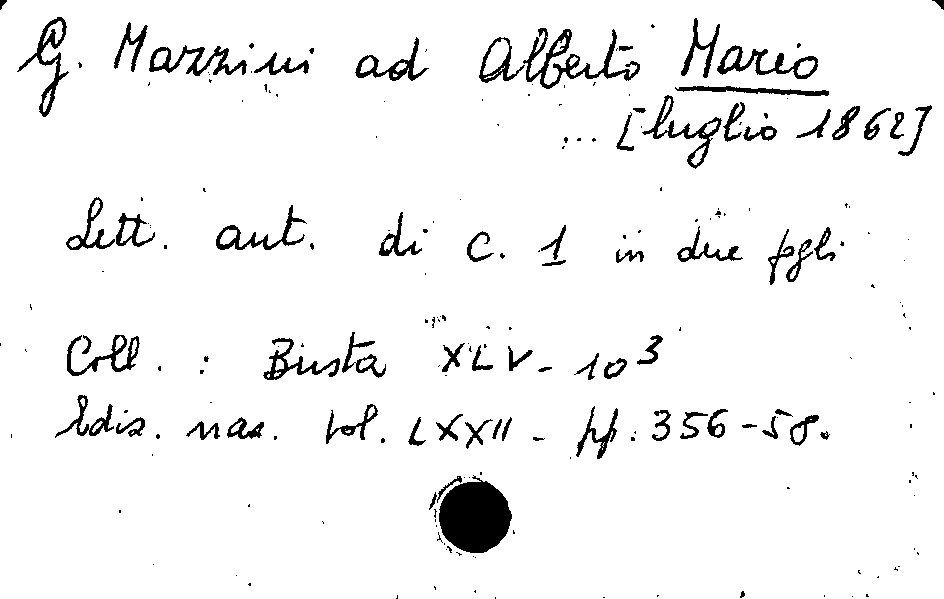 G. Mazzini ad Alberto Mario
... [luglio 1862]
Lett. aut. di c. 1 in due fgli
Coll. : Busta XLV - 10³
Ediz. naz. Vol. LXXII - pp. 356-58.